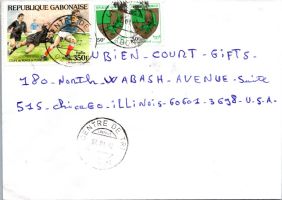 REPUBLIQUE GABONAISE
350F
UBIEN - COURT - GIFTS -
180 - North WABASH - AVENUE - Suite
515 - chicago - ILLINOIS - 60601-3698 - U.S.A.
CENTRE DE TRI